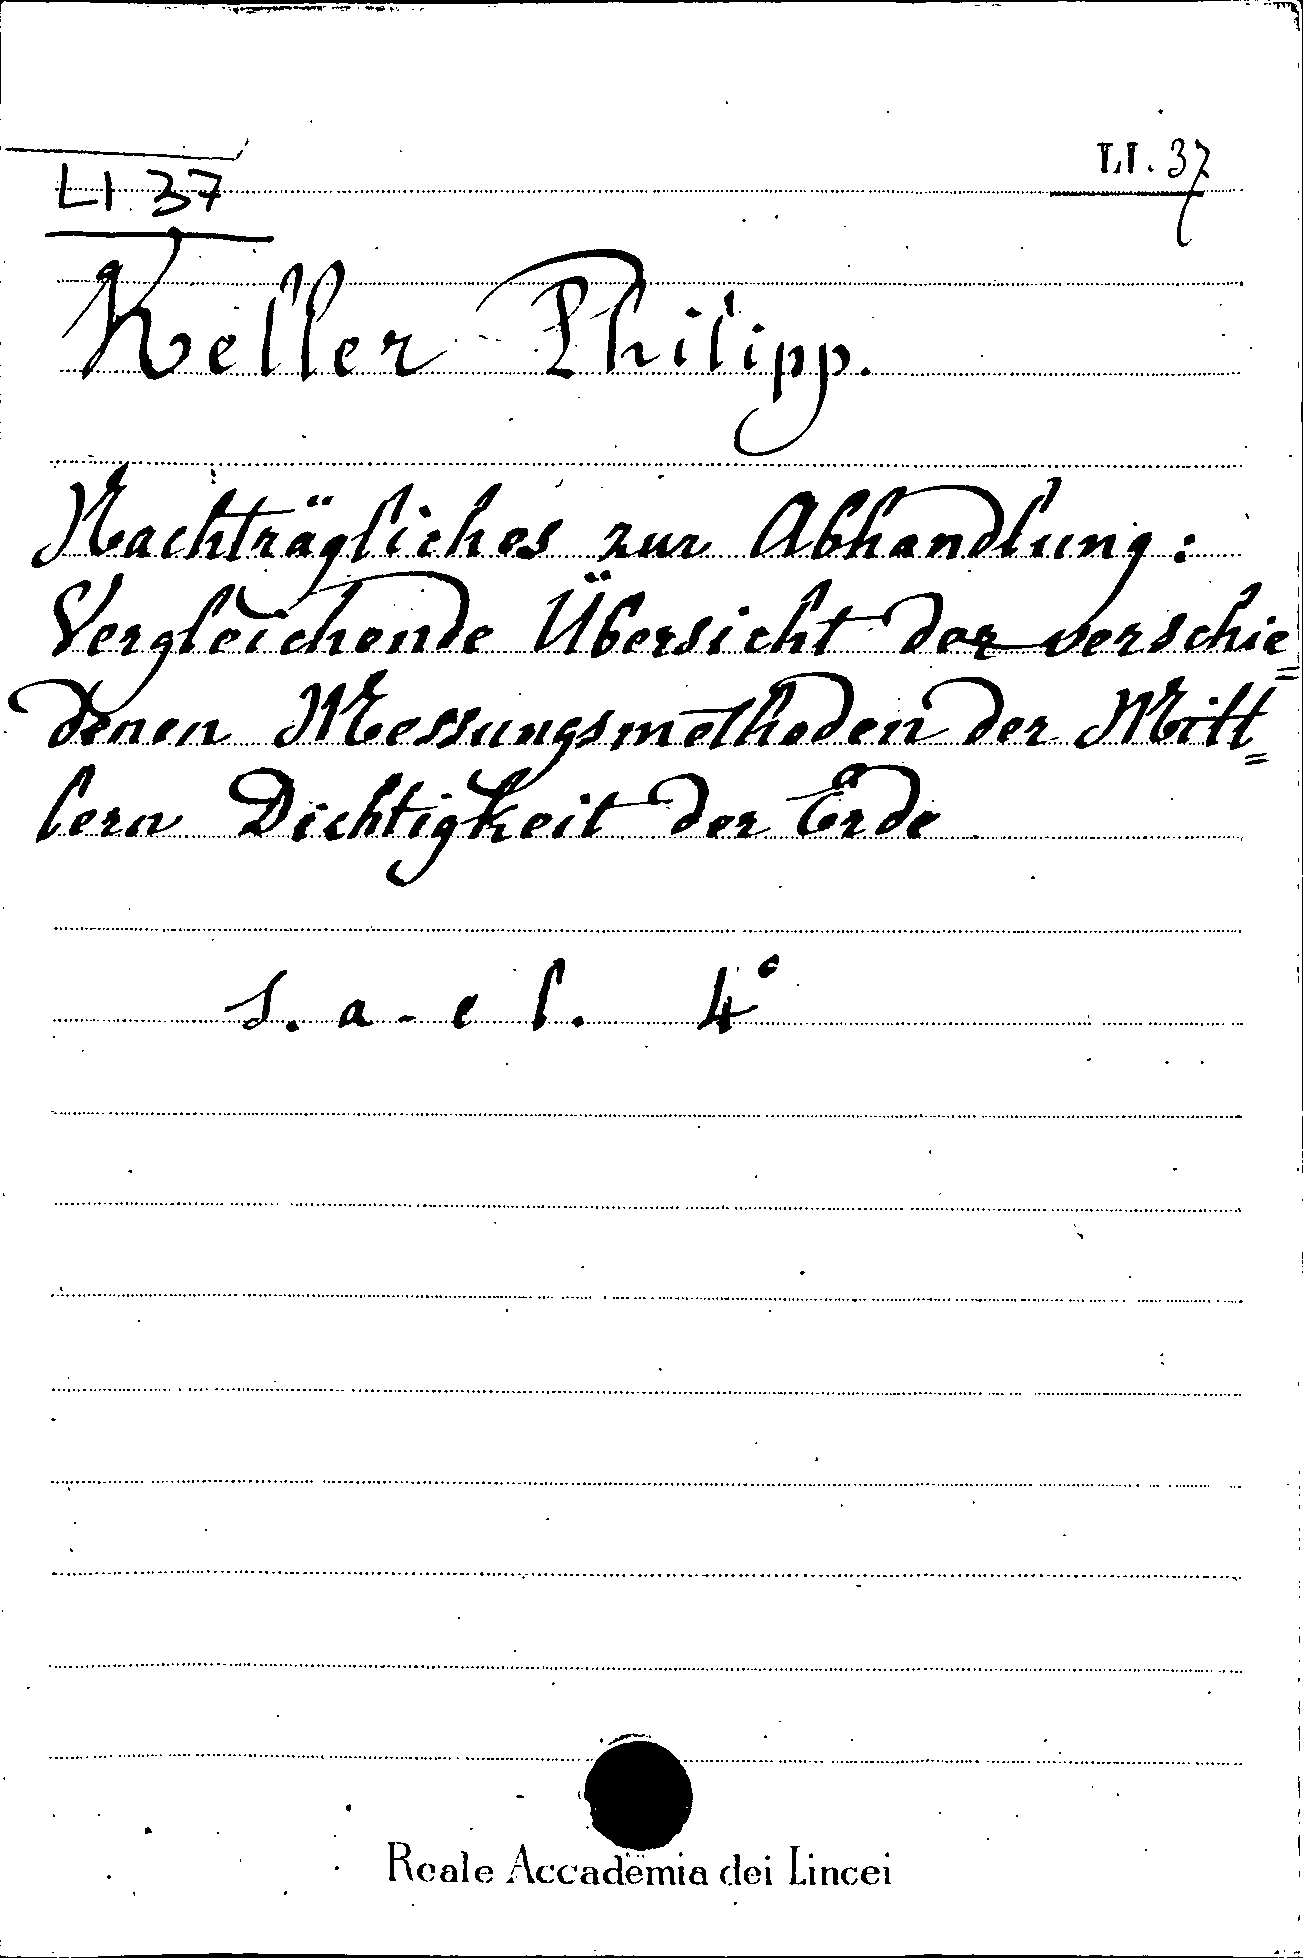 LI. 37
LI. 37
Keller Philipp.
Nachträgliches zur Abhandlung:
Vergleichende Übersicht der verschie=
denen Messungsmethoden der Mitt=
lern Dichtigkeit der Erde
S. a. e l. 4°
Reale Accademia dei Lincei